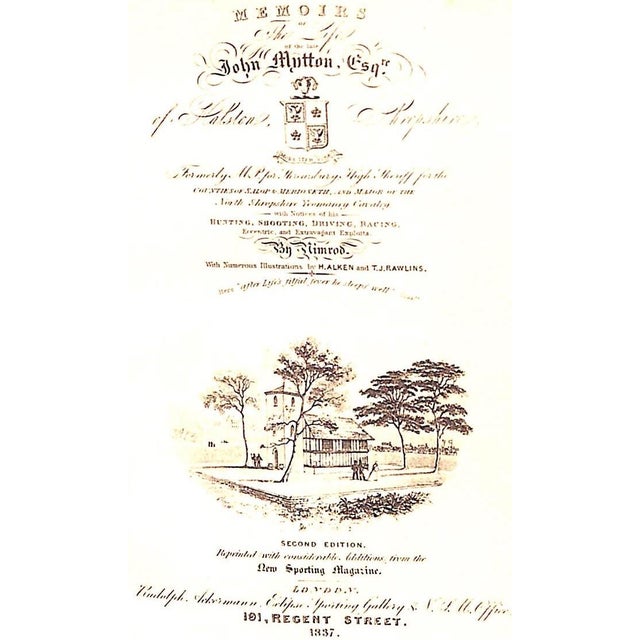 MEMOIRS
OF
The Life
of the late
John Mytton, Esqre.
of Halston, Shropshire,
Formerly M.P. for Shrewsbury, High Sheriff for the
COUNTIES OF SALOP & MERIONETH, AND MAJOR OF THE
North Shropshire Yeomanry Cavalry
with Notices of his
HUNTING, SHOOTING, DRIVING, RACING,
Eccentric, and Extravagant Exploits.
By Nimrod.
With Numerous Illustrations by H. ALKEN and T. J. RAWLINS.
Here "after Life's fitful fever he sleeps well"
SECOND EDITION.
Reprinted with considerable Additions, from the
New Sporting Magazine.
LONDON.
Rudolph Ackermann, Eclipse Sporting Gallery & N.S.M. Office
191, REGENT STREET.
1837.